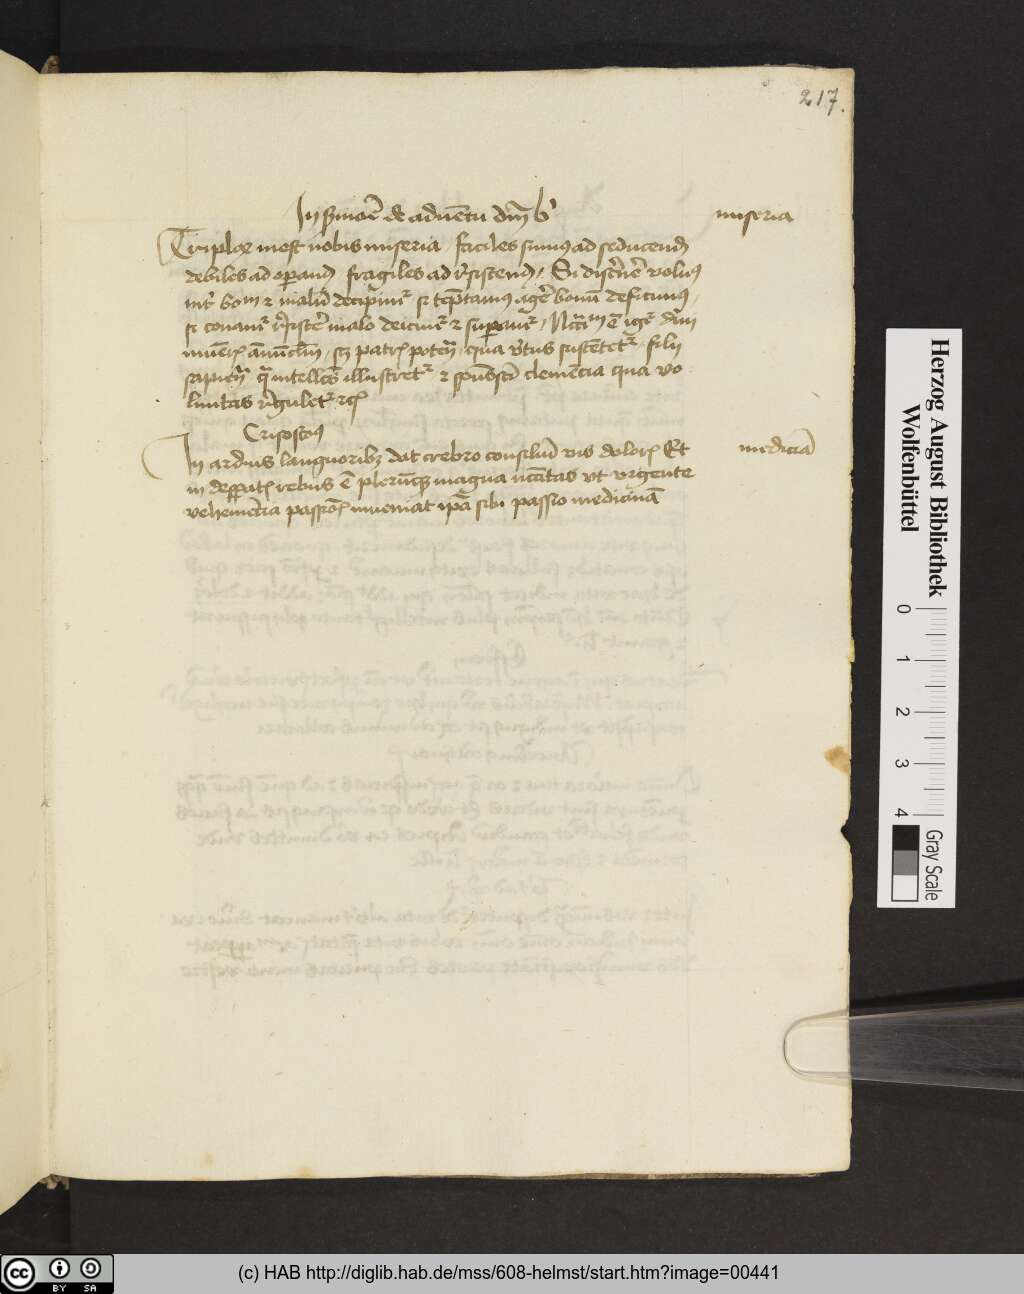 217.
In sermōe de aduētu dnī bʼ
miseria
Triplex inest nobis miseria faciles sumus ad seducend
debiles ad operand fragiles ad resistend / Si discernere volumus
inter bonum et malū decipimur si teptamus agere bonum deficimus /
si conamur resistere malo deicimur et superamur /
muneris /scz patris potencia qua virtus sustentetur / filii
sapiencia qua intellectus illustretur et spūssancti clemencia qua vo
luntas reguletur etc
Crisostomus
In arduis languoribus dat crebro consiliū vis doloris Et
medicina
in desperatis rebus ē plerūque magna vt vrgente
vehemēcia passionis inueniat ipā sibi passio medicinā
Herzog August Bibliothek
Wolfenbüttel
0 1 2 3 4
Gray Scale
cc BY SA
(c) HAB http://diglib.hab.de/mss/608-helmst/start.htm?image=00441